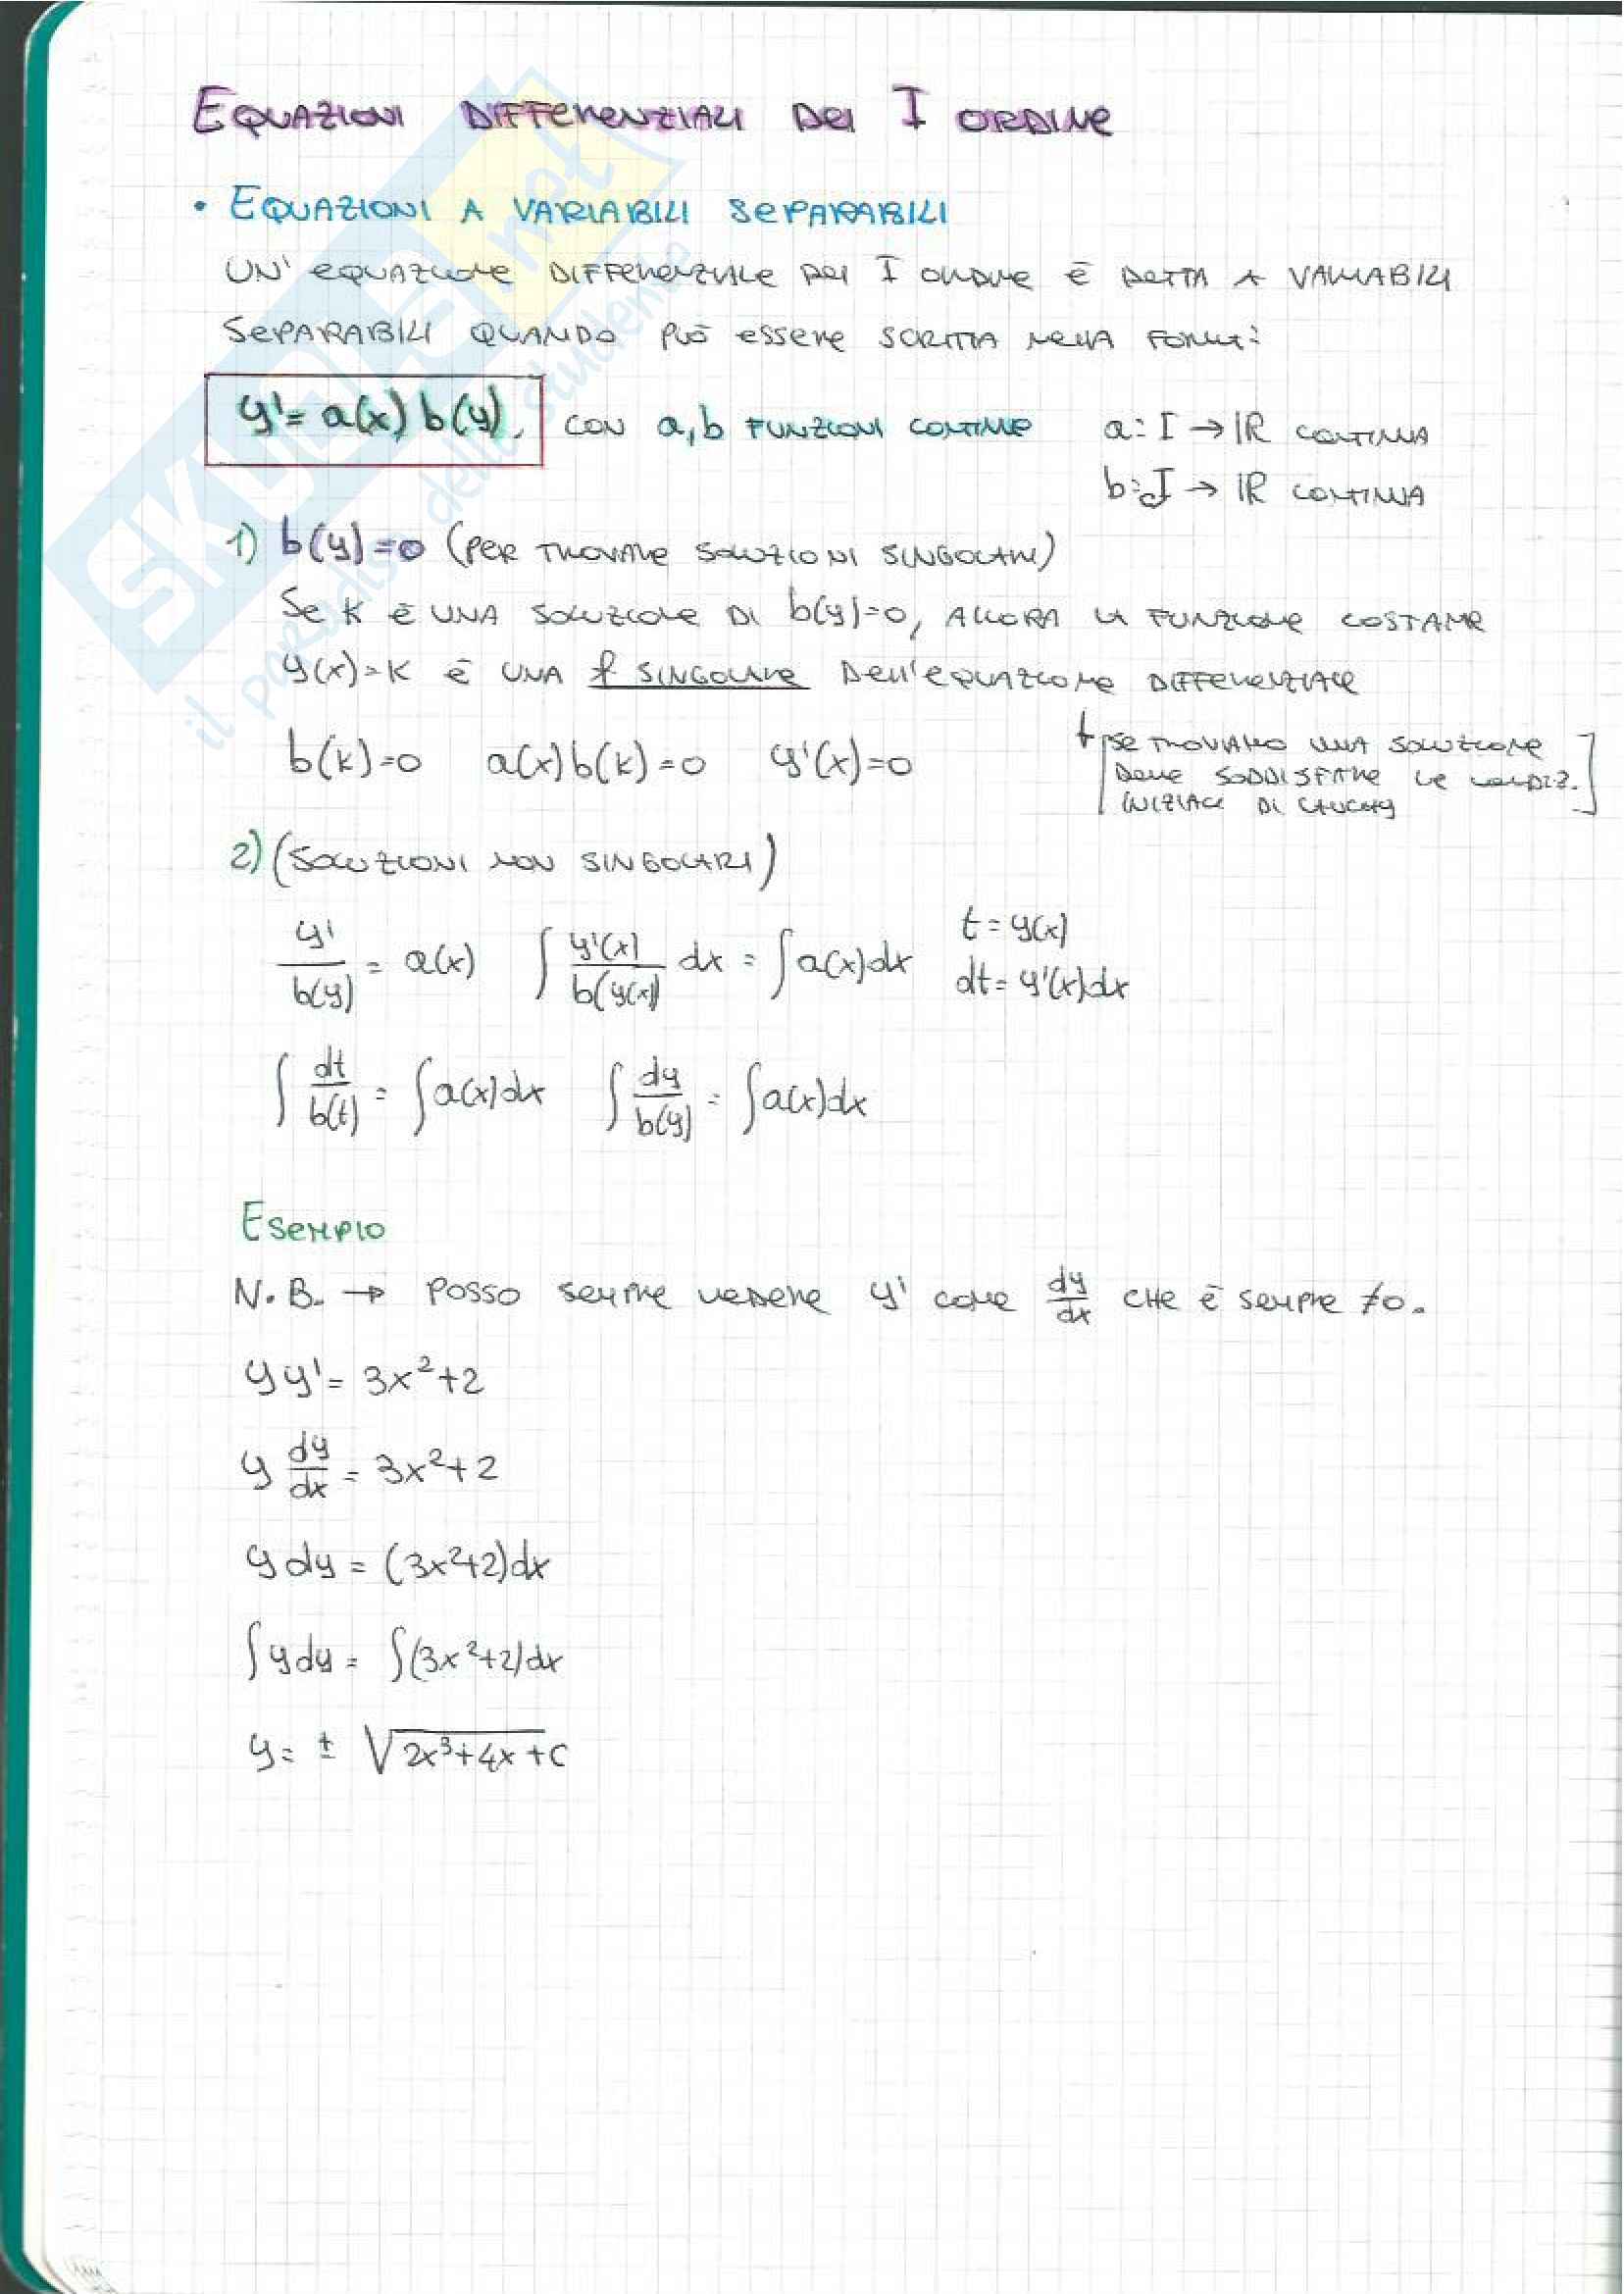 EQUAZIONI DIFFERENZIALI DEL I ORDINE
• EQUAZIONI A VARIABILI SEPARABILI
UN' EQUAZIONE DIFFERENZIALE DEL I ORDINE È DETTA A VARIABILI
SEPARABILI QUANDO PUÒ ESSERE SCRITTA NELLA FORMA:
y'= a(x) b(y), CON a,b FUNZIONI CONTINUE a: I → IR CONTINUA
b: J → IR CONTINUA
1) b(y)=0 (PER TROVARE SOLUZIONI SINGOLARI)
SE K È UNA SOLUZIONE DI b(y)=0, ALLORA LA FUNZIONE COSTANTE
y(x)=K È UNA f SINGOLARE DELL'EQUAZIONE DIFFERENZIALE
b(k)=0 a(x)b(k)=0 y'(x)=0
[SE TROVIAMO UNA SOLUZIONE
DEVE SODDISFARE LE CONDIZ.
INIZIALI DI CAUCHY]
2) (SOLUZIONI NON SINGOLARI)
y'/b(y) = a(x) ∫ y'(x)/b(y(x)) dx = ∫a(x)dx t = y(x)
dt= y'(x)dx
∫ dt/b(t) = ∫a(x)dx ∫ dy/b(y) = ∫a(x)dx
ESEMPIO
N.B. → POSSO SEMPRE VEDERE y' COME dy/dx CHE È SEMPRE ≠0.
yy'= 3x²+2
y dy/dx = 3x²+2
y dy = (3x²+2)dx
∫ydy = ∫(3x²+2)dx
y= ± √2x³+4x+c
SKUOLA.net
il paradiso dello studente